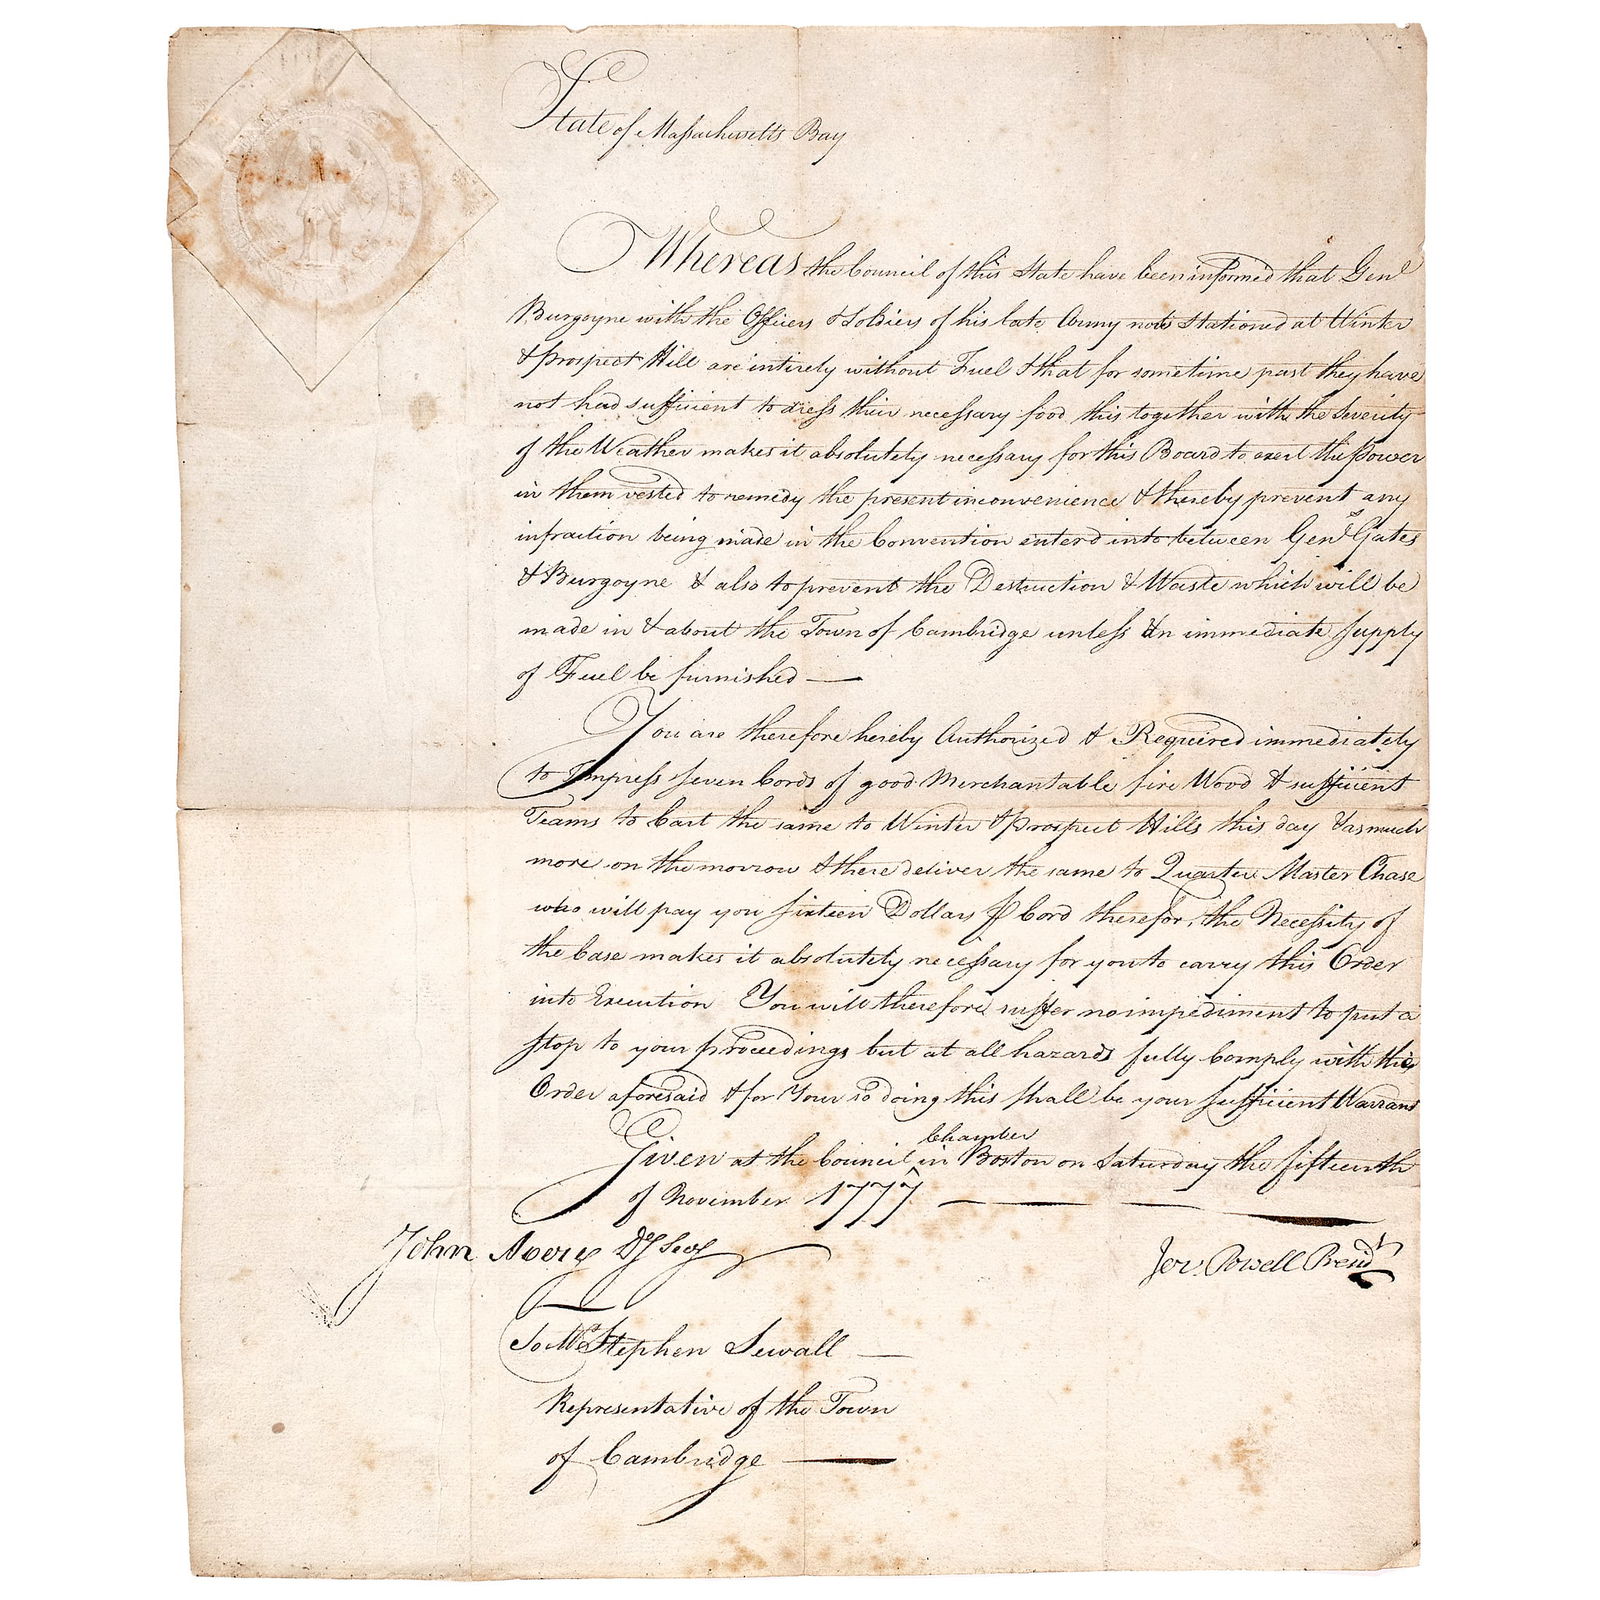 State of Massachusetts Bay
Whereas the Council of this State have been informed that Genl
Burgoyne with the Officers & Soldiers of his late Army now Stationed at Winter
& prospect Hill are intirely without Fuel & that for sometime past they have
not had sufficient to dress their necessary food this together with the Severity
of the Weather makes it absolutely necessary for this Board to exert the Power
in them vested to remedy the present inconvenience & thereby prevent any
infraction being made in the Convention enterd into between Genls Gates
& Burgoyne & also to prevent the Destruction & Waste which will be
made in & about the Town of Cambridge unless an immediate supply
of Fuel be furnished —
You are therefore hereby Authorized & Required immediately
to Impress seven Cords of good Merchantable fire Wood & sufficient
Teams to Cart the same to Winter & prospect Hills this day & as much
more on the morrow & there deliver the same to Quarter Master Chase
who will pay you sixteen Dollars ⅌ Cord therefor, the Necessity of
the Case makes it absolutely necessary for you to carry this Order
into Execution You will therefore suffer no impediment to put a
stop to your proceedings but at all hazards fully Comply with this
Order aforesaid & for Your so doing this shall be your sufficient Warrant
Given at the Council Chamber in Boston on Saturday the fifteenth
of November 1777 —
John Avery Dy Secy
Jer. Powell Presidt
To Mr Stephen Sewall —
Representative of the Town
of Cambridge —